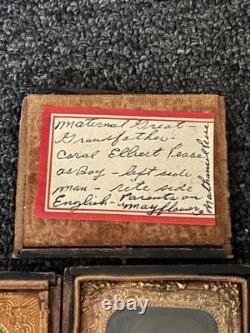 Maternal Great-
Grandfather-
Coral Elbert Pease
as Boy - left side
man - rite side
English - Parents on
mayflower
Nathaniel